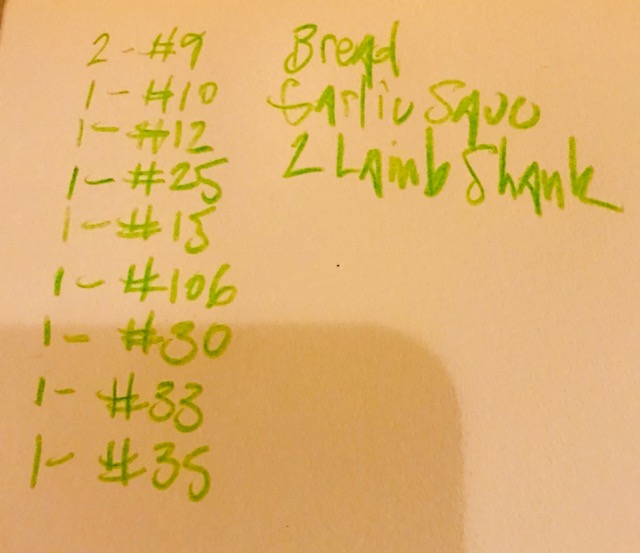 2 - #9
1 - #10
1 - #12
1 - #25
1 - #15
1 - #106
1 - #30
1 - #33
1 - #35
Bread
Garlic
2 Lamb Shank